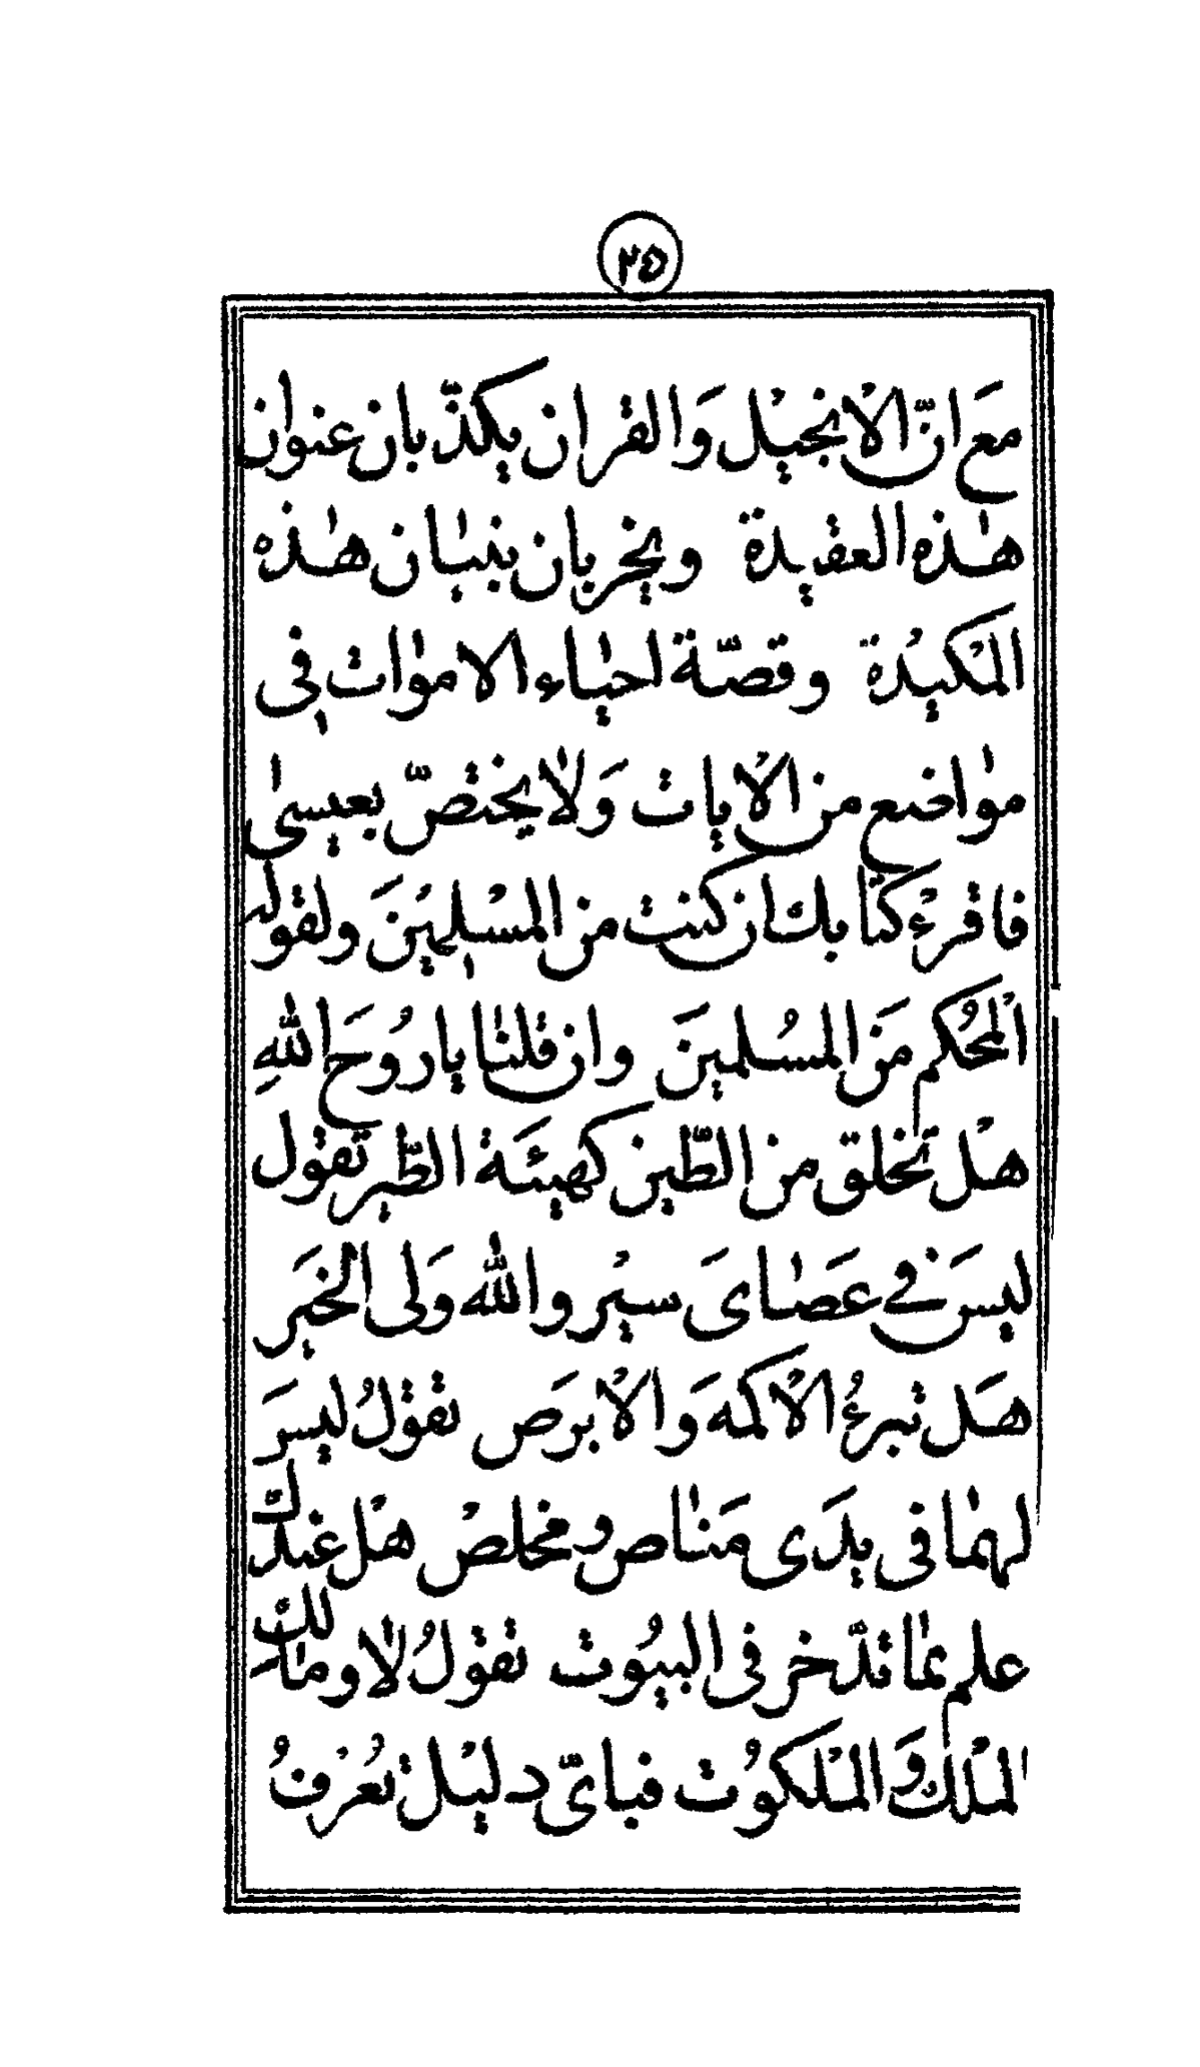 ٢٥
مَع انّ الْانجيْل وَالقران يكذّبان عنوٰان
هٰذه العقيدة ويخربان بنيٰان هٰذه
الَمكيدُة وقصّة احيٰاء الاموٰات فِى
موٰاضع من الْايات وَلاٰ يختصّ بعيسىٰ
فاقرءْ كتٰابك ان كنت من المسْلِميَن ولقوله
المْحُكم مَن المسُلمينَ وان قلنٰا يا رُوحَ اللهِ
هلْ تخلق من الطّين كهيئَة الطّير تقول
ليسَ في عَصٰاىَ سيْر والله وَلى الخَير
هَل تبرءُ الْاكمه وَالْابرَص تقوْلُ ليسَ
لهمٰا فى يدَى مَنٰاص ومخلصْ هلْ عندك
علم بمٰا تدّخر فى البيُوت تقولُ لاٰ ومٰالك
الملْك وَالملْكوُت فباىّ دليْل تعُرْفُ